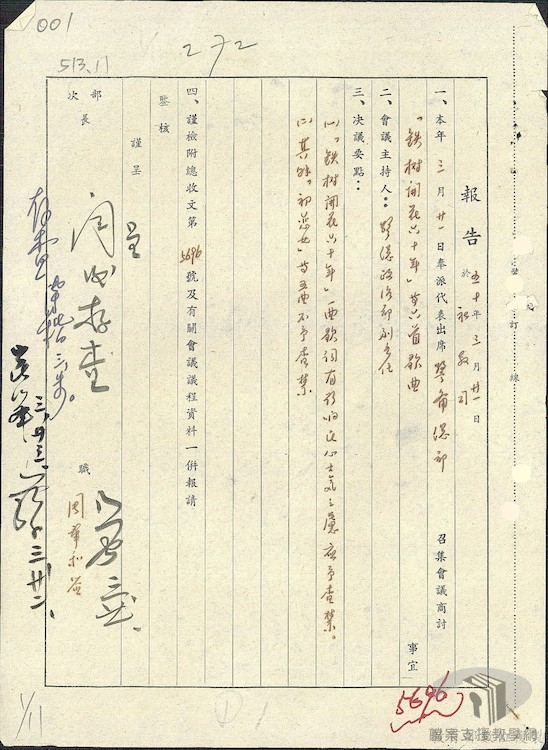 001
272
513.11
報告 五十年三月廿一日
於 社教司
一、本年三月廿一日奉派代表出席警備總部 召集會議商討
「鉄树開花六十年」等六首歌曲 事宜
二、會議主持人：警總政治部副主任
三、決議要點：
(一)「鉄树開花六十年」一曲歌詞有影响民心士気之慮應予查禁。
(二)其餘 等五曲不予查禁
四、謹檢附總收文第5696號及有關會議議程資料一併報請
鑒核
謹呈
部長
次長
職 周華和
呈
閱後存查
存查
三、廿三、
三廿二、
5696
1/11
檔案支援教學網
裝訂線